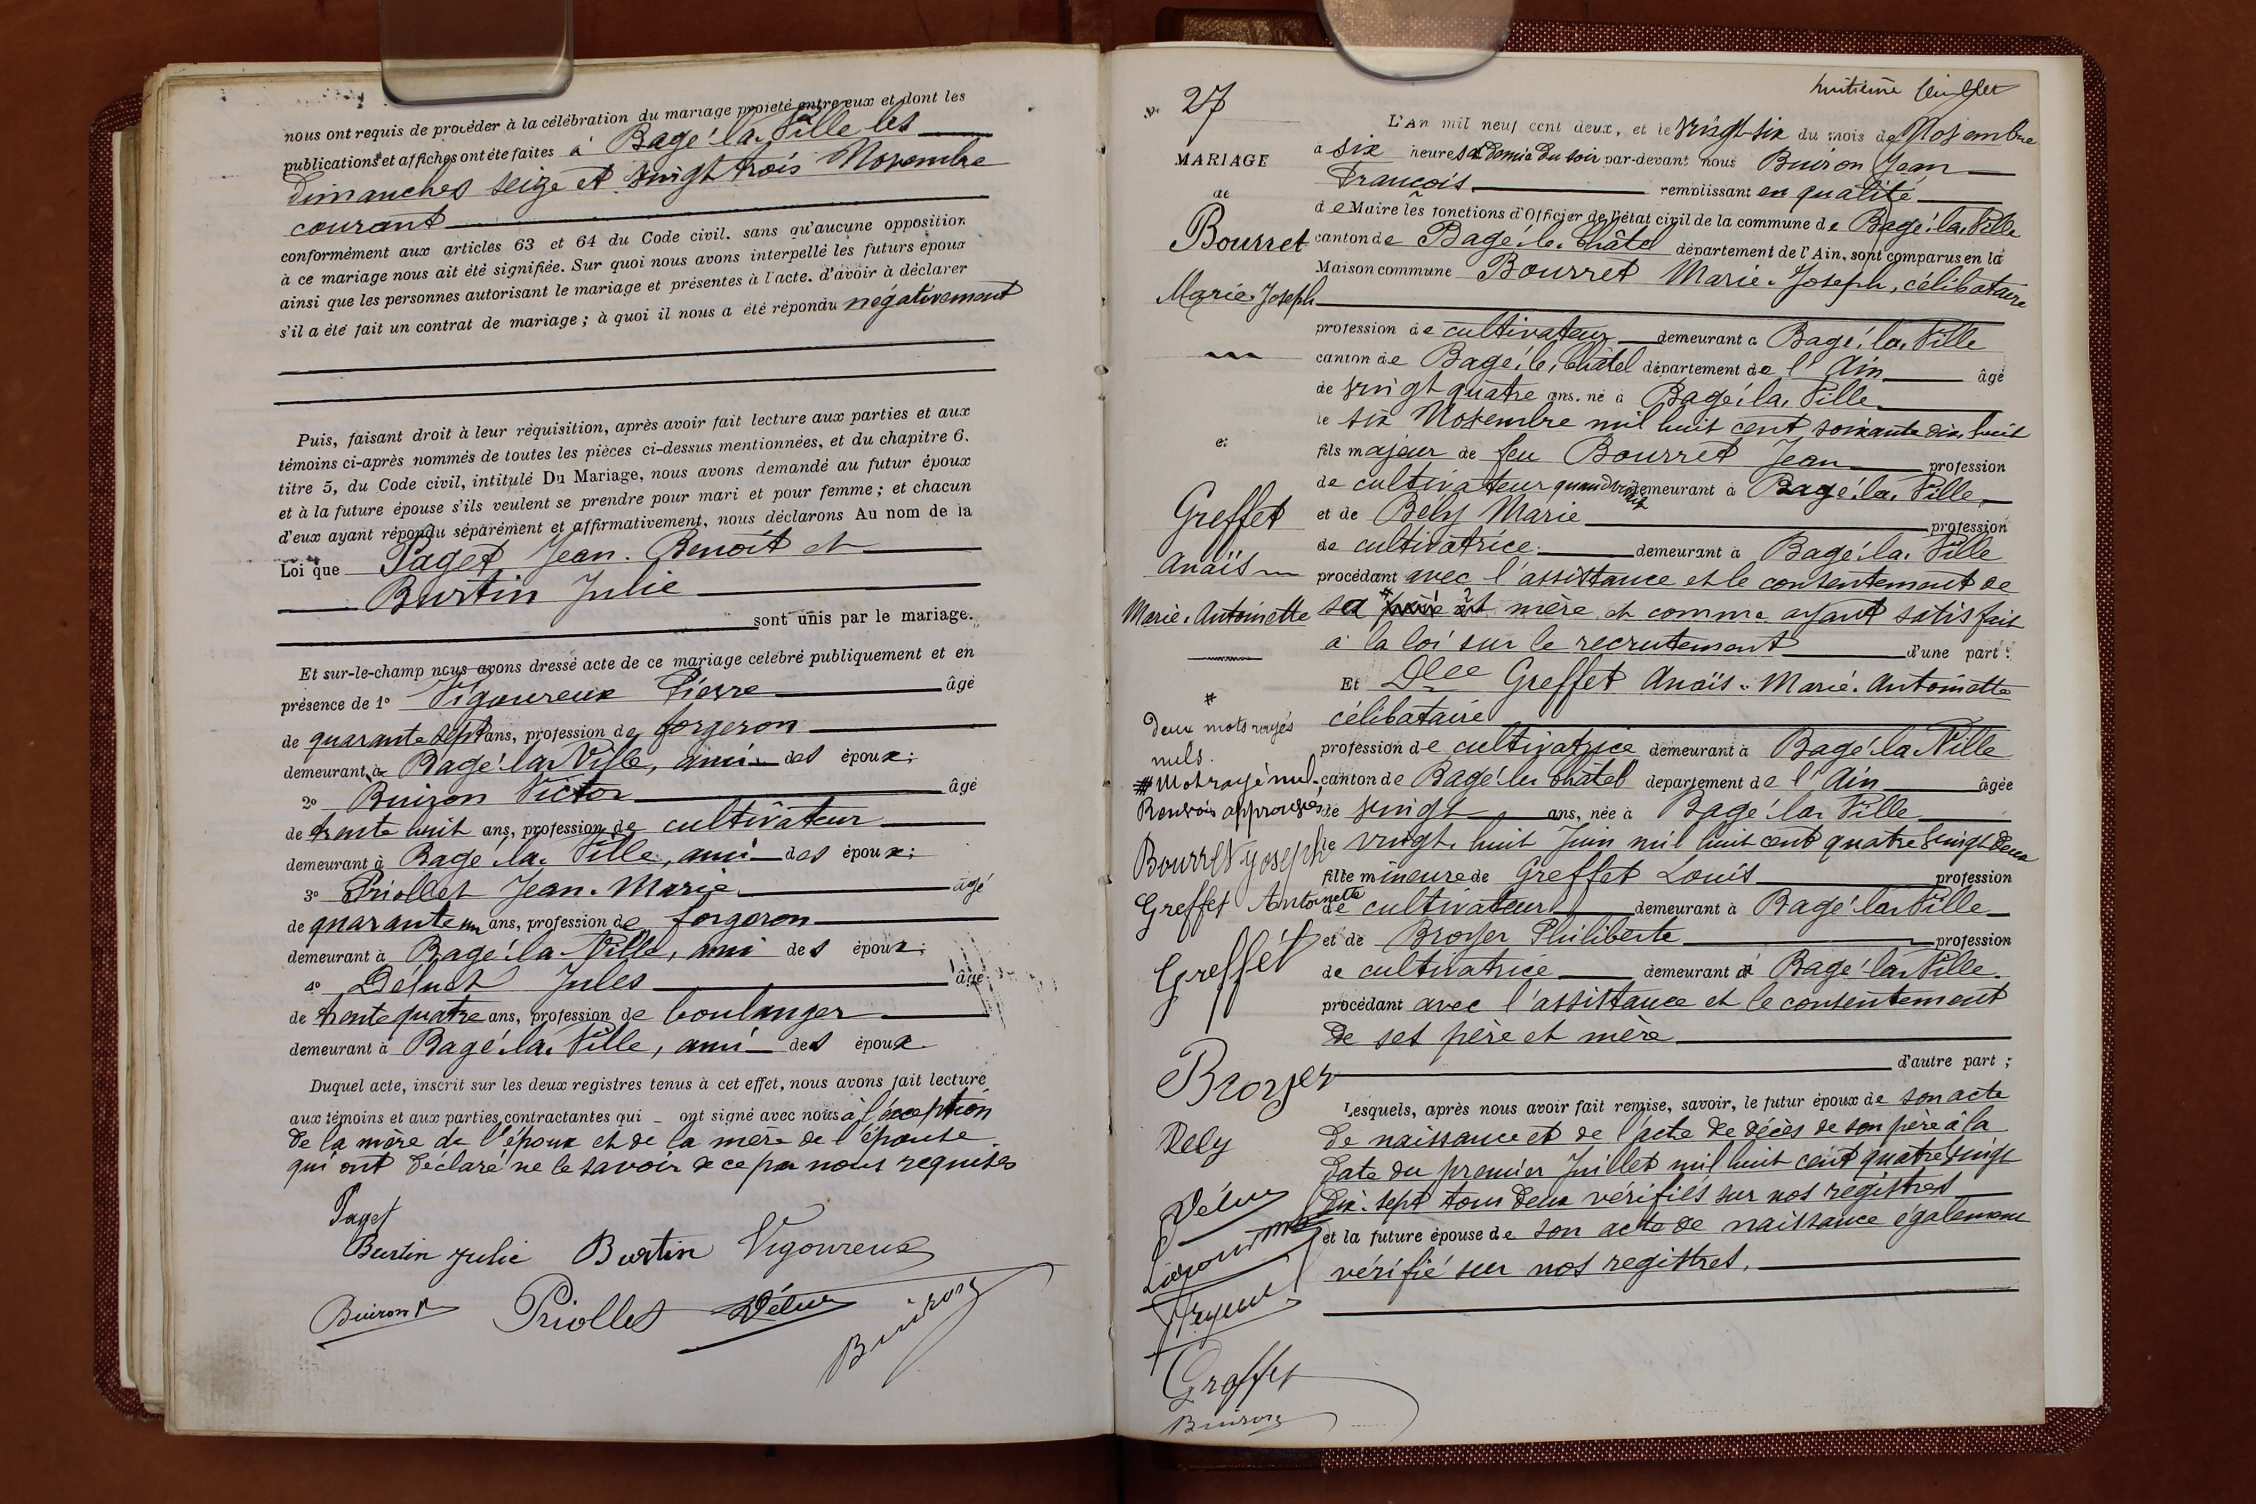 nous ont requis de procéder à la célébration du mariage projeté entre eux et dont les
publications et affiches ont été faites à Bagé-la-Ville les
dimanches seize et vingt trois Novembre
courant
conformément aux articles 63 et 64 du Code civil. sans qu'aucune opposition
à ce mariage nous ait été signifiée. Sur quoi nous avons interpellé les futurs époux
ainsi que les personnes autorisant le mariage et présentes à l'acte. d'avoir à déclarer
s'il a été fait un contrat de mariage ; à quoi il nous a été répondu négativement
Puis, faisant droit à leur réquisition, après avoir fait lecture aux parties et aux
témoins ci-après nommés de toutes les pièces ci-dessus mentionnées, et du chapitre 6.
titre 5, du Code civil, intitulé Du Mariage, nous avons demandé au futur époux
et à la future épouse s'ils veulent se prendre pour mari et pour femme ; et chacun
d'eux ayant répondu séparément et affirmativement, nous déclarons Au nom de la
Loi que Paget, Jean-Benoit et
Burtin Julie
sont unis par le mariage.
Et sur-le-champ nous avons dressé acte de ce mariage célébré publiquement et en
présence de 1° Vigoureux Pierre âgé
de quarante sept ans, profession de forgeron
demeurant à Bagé-la-Ville, ami des époux ;
2° Buiron Victor âgé
de trente huit ans, profession de cultivateur
demeurant à Bagé-la-Ville, ami des époux ;
3° Priollet Jean-Marie âgé
de quarante un ans, profession de forgeron
demeurant à Bagé-la-Ville, ami des époux ;
4° Jules âgé
de trente quatre ans, profession de boulanger
demeurant à Bagé-la-Ville, ami des époux
Duquel acte, inscrit sur les deux registres tenus à cet effet, nous avons fait lecture
aux témoins et aux parties contractantes qui ont signé avec nous à l'exception
de la mère de l'époux et de la mère de l'épouse
qui ont déclaré ne le savoir de ce par nous requises
Paget
Burtin Julie Burtin Vigoureux
Buiron V Priollet
Buiron
huitième feuillet
N° 27
MARIAGE
de
Bourret
Marie-Joseph
et
Greffet
Anaïs
Marie-Antoinette
#
Deux mots rayés
nuls.
# Mot rayé nul.
Renvois approuvés
Bourret Joseph
Greffet Antoinette
Greffet
Broyer
Bely
Greffet
Buiron
L'An mil neuf cent deux, et le vingt-six du mois de Novembre
à six heures et demie du soir par-devant nous Buiron Jean
François remplissant en qualité
de Maire les fonctions d'Officier de l'état civil de la commune de Bagé-la-Ville
canton de Bagé-le-Châtel département de l'Ain, sont comparus en la
Maison commune Bourret Marie-Joseph, célibataire
profession de cultivateur demeurant à Bagé-la-Ville
canton de Bagé-le-Châtel département de l'Ain âgé
de vingt quatre ans. né à Bagé-la-Ville
le six Novembre mil huit cent soixante dix huit
fils majeur de feu Bourret Jean profession
de cultivateur quand vivait demeurant à Bagé-la-Ville
et de Bely Marie profession
de cultivatrice demeurant à Bagé-la-Ville
procédant avec l'assistance et le consentement de
sa mère et comme ayant satisfait
à la loi sur le recrutement d'une part :
Et Dlle Greffet Anaïs-Marie-Antoinette
célibataire
profession de cultivatrice demeurant à Bagé-la-Ville
canton de Bagé-le-Châtel département de l'Ain âgée
de vingt ans, née à Bagé-la-Ville
le vingt-huit Juin mil huit cent quatre vingt deux
fille mineure de Greffet Louis profession
de cultivateur demeurant à Bagé-la-Ville
et de Broyer Philiberte profession
de cultivatrice demeurant à Bagé-la-Ville
procédant avec l'assistance et le consentement
de ses père et mère
d'autre part ;
Lesquels, après nous avoir fait remise, savoir, le futur époux de son acte
de naissance et de l'acte de décès de son père à la
date du premier Juillet mil huit cent quatre vingt
dix-sept tous deux vérifiés sur nos registres
et la future épouse de son acte de naissance également
vérifié sur nos registres.